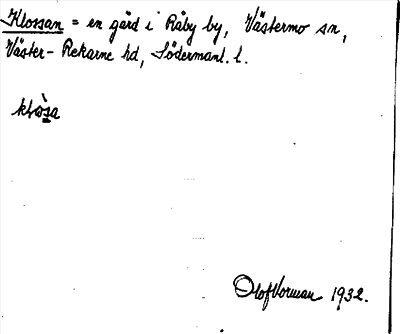 Klossan = en gård i Råby by, Västermo sn,
Väster-Rekarne hd, Södermanl. l.
klòsa
Olof Vorman 1932.